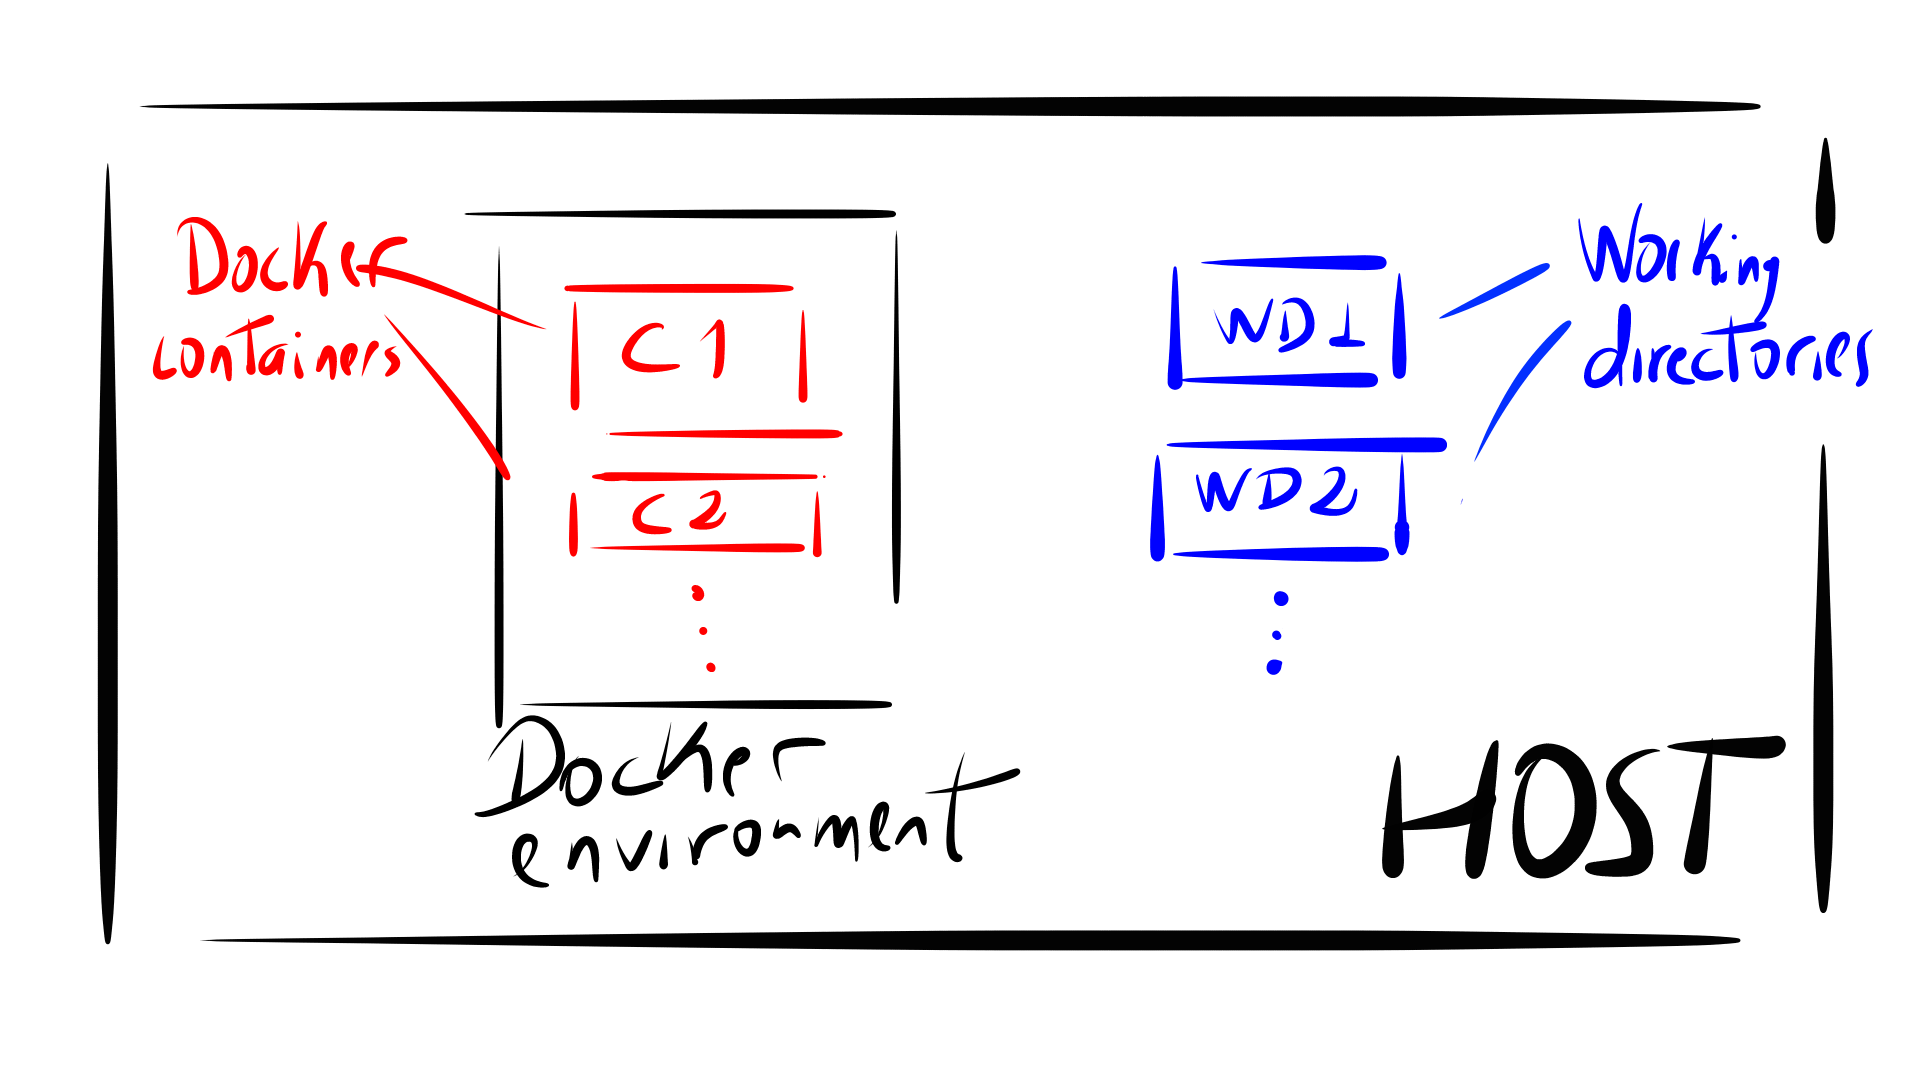 Docker
containers
C1
C2
Docker
environment
WD1
WD2
Working
directories
HOST